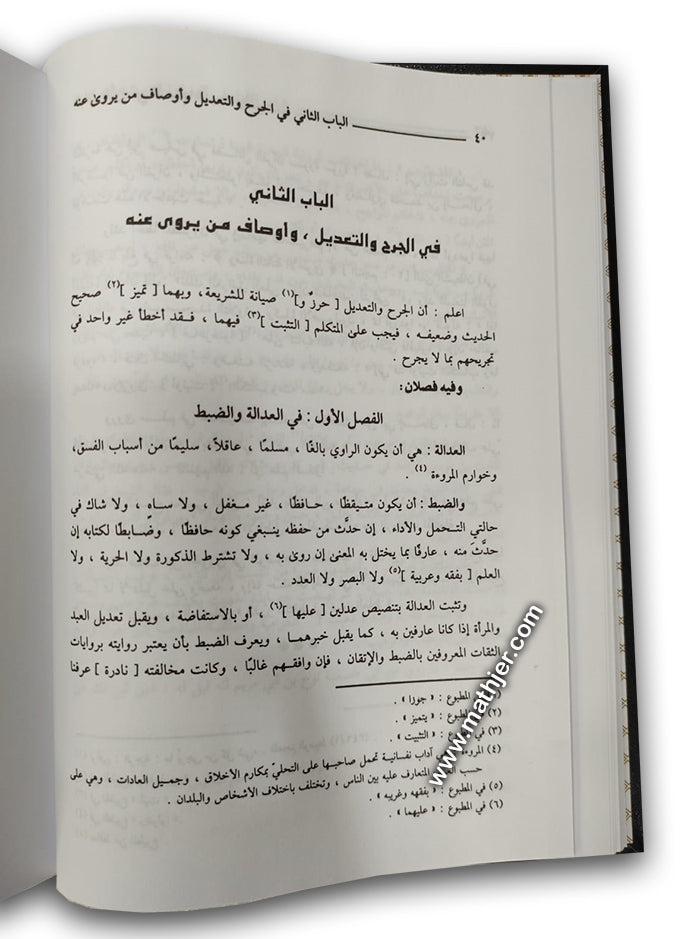 ٤٠ الباب الثاني في الجرح والتعديل وأوصاف من يروى عنه
الباب الثاني
في الجرح والتعديل ، وأوصاف من يروى عنه
اعلم : أن الجرح والتعديل [ حرزٌ و](١) صيانة للشريعة، وبهما [ تميز ](٢) صحيح
الحديث وضعيفـه ، فيجب على المتكلم [ التثبت ](٣) فيهما ، فـقد أخطأ غير واحد في
تجريحهم بما لا يجرح .
وفيه فصلان:
الفصل الأول : في العدالة والضبط
العدالة : هي أن يكون الراوي بالغًا ، مسلمًا ، عاقلاً، سليمًا من أسباب الفسق،
وخوارم المروءة (٤) .
والضبط : أن يكون متـيقظًا ، حـافظًا ، غير مـغفل ، ولا سـاهٍ ، ولا شاك في
حالتي التـحمل والأداء ، إن حدَّث من حفظه ينـبغي كونه حافظًا ، وضـابطًا لكتابه إن
حدَّثَ منه ، عارفًا بما يختل به المعنى إن روىٰ به ، ولا تشترط الذكورة ولا الحرية ، ولا
العلم [ بفقه وعربية ](٥) ولا البصر ولا العدد .
وتثبت العدالة بتنصيص عدلين [ عليها ](٦) ، أو بالاستفاضة ، ويقبل تعديل العبد
والمرأة إذا كانا عارفين به ، كما يقبل خبرهمـا ، ويعرف الضبط بأن يعتبر روايته بروايات
الثقات المعروفين بالضبط والإتقان ، فإن وافقـهم غالبًا ، وكانت مخالفته [ نادرة ] عرفنا
المطبوع : « جوزا » .
(٢) المطبوع : « يتميز » .
(٣) في المطبوع : « التثبيت » .
(٤) المروءة هي آداب نفسانية تحمل صاحبـها على التحليّ بمكارم الأخلاق ، وجميـل العادات ، وهي على
حسب المتعارف عليه بين الناس ، وتختلف باختلاف الأشخاص والبلدان .
(٥) في المطبوع : « بفقهه وغريبه » .
(٦) في المطبوع : « عليهما » .
www.mathjer.com